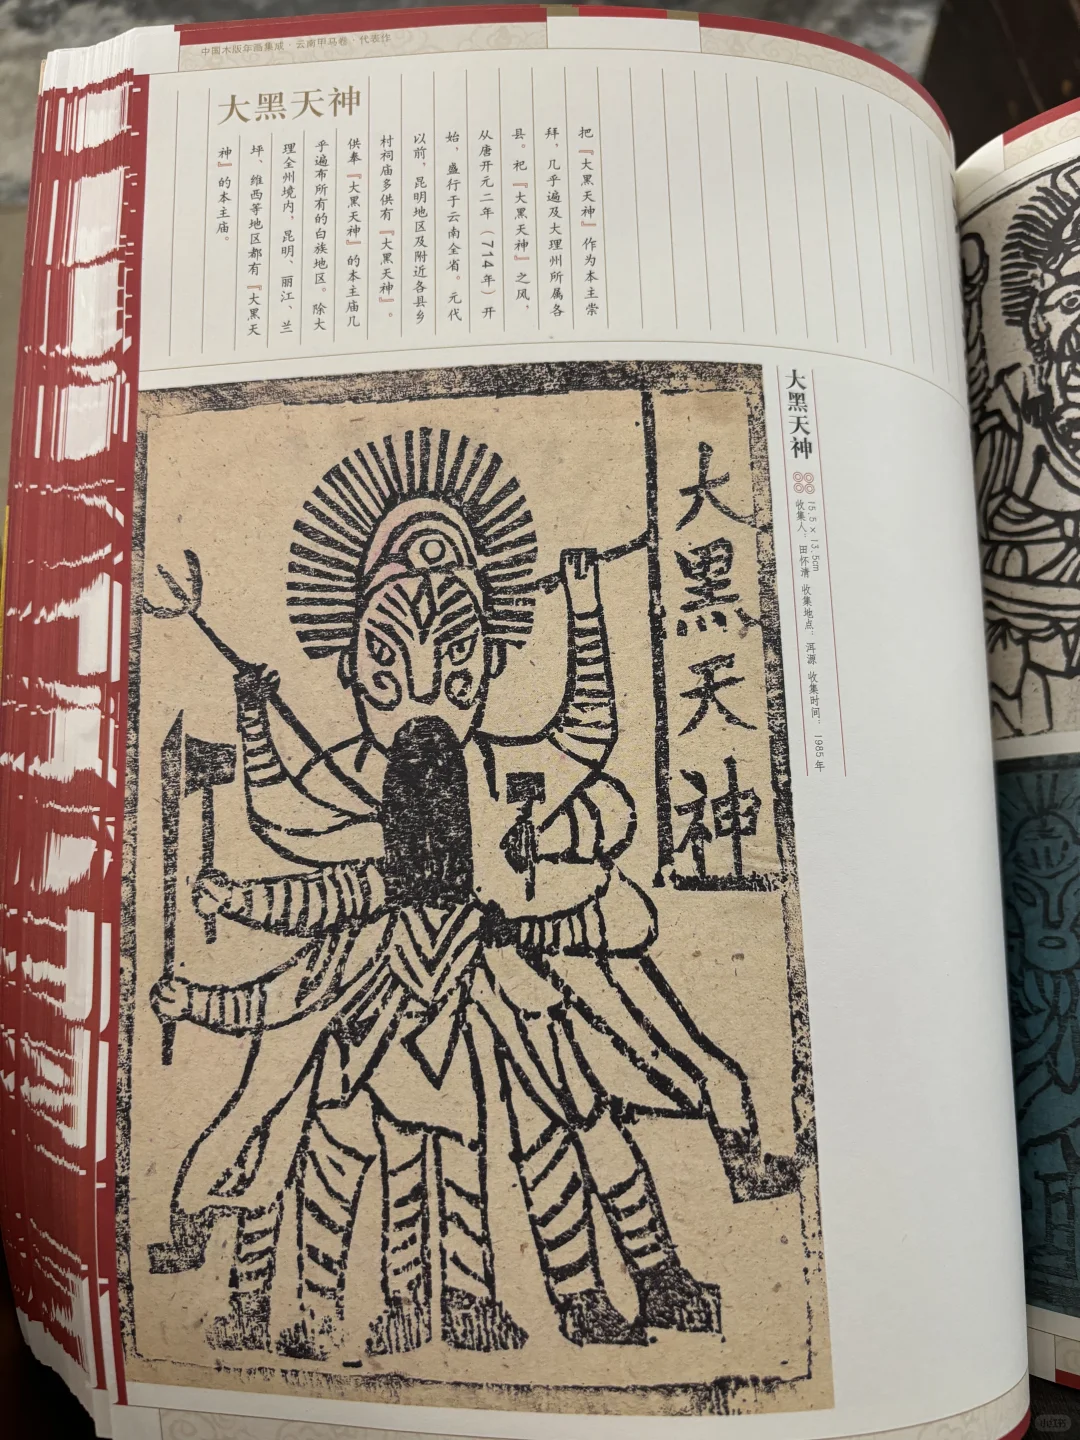 中国木版年画集成·云南甲马卷·代表作
大黑天神
把『大黑天神』作为本主崇
拜，几乎遍及大理州所属各
县。祀『大黑天神』之风，
从唐开元二年（714年）开
始，盛行于云南全省。元代
以前，昆明地区及附近各县乡
村祠庙多供有『大黑天神』。
供奉『大黑天神』的本主庙几
乎遍布所有的白族地区。除大
理全州境内，昆明、丽江、兰
坪、维西等地区都有『大黑天
神』的本主庙。
大黑天神
15.5×13.5cm
收集人：田怀清 收集地点：洱源 收集时间：1985年
大黑天神
小红书